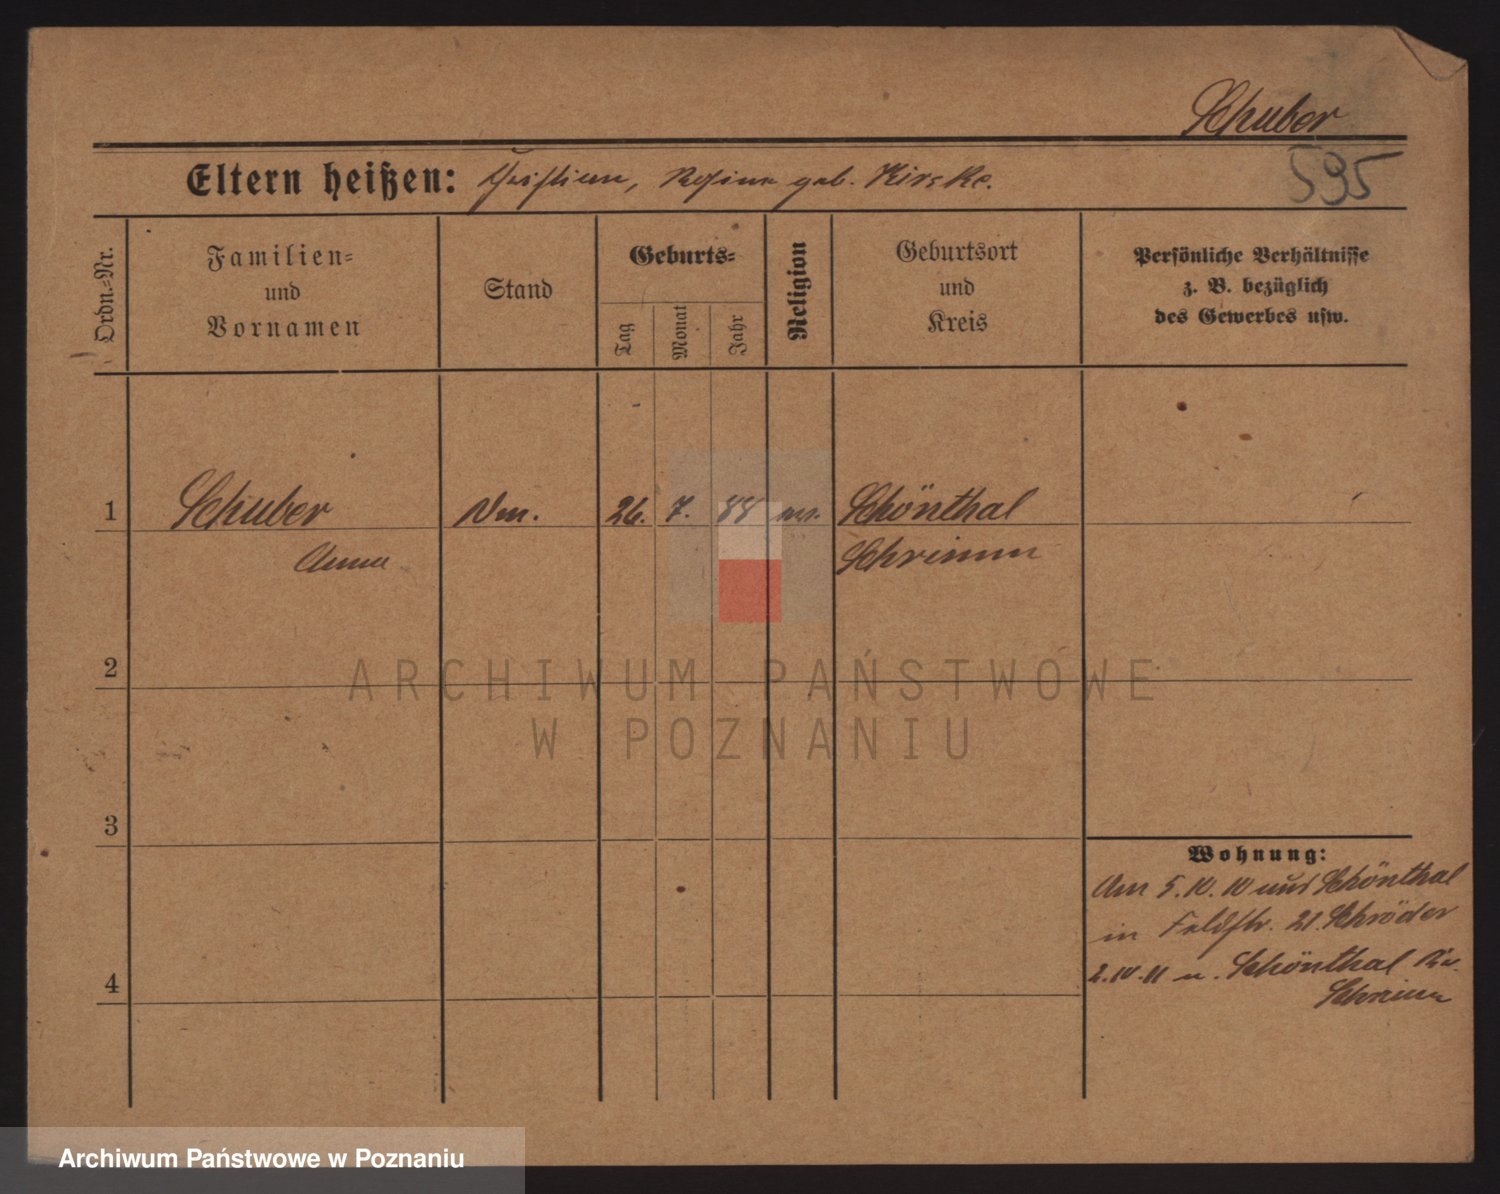 Schuber
595
Eltern heißen: Christian, Rosina geb. Kirske.
Ordn.=Nr.
Familien=
und
Vornamen
Stand
Geburts=
Tag
Monat
Jahr
Religion
Geburtsort
und
Kreis
Persönliche Verhältnisse
z. B. bezüglich
des Gewerbes usw.
1 Schuber 26. 7. 88 Schönthal
Anna Schrimm
2
3
4
Wohnung:
Am 5.10.10 aus Schönthal
in Feldstr. 21. Schröder
2.10.11 n. Schönthal Kr.
Schrimm
ARCHIWUM PAŃSTWOWE
W POZNANIU
Archiwum Państwowe w Poznaniu